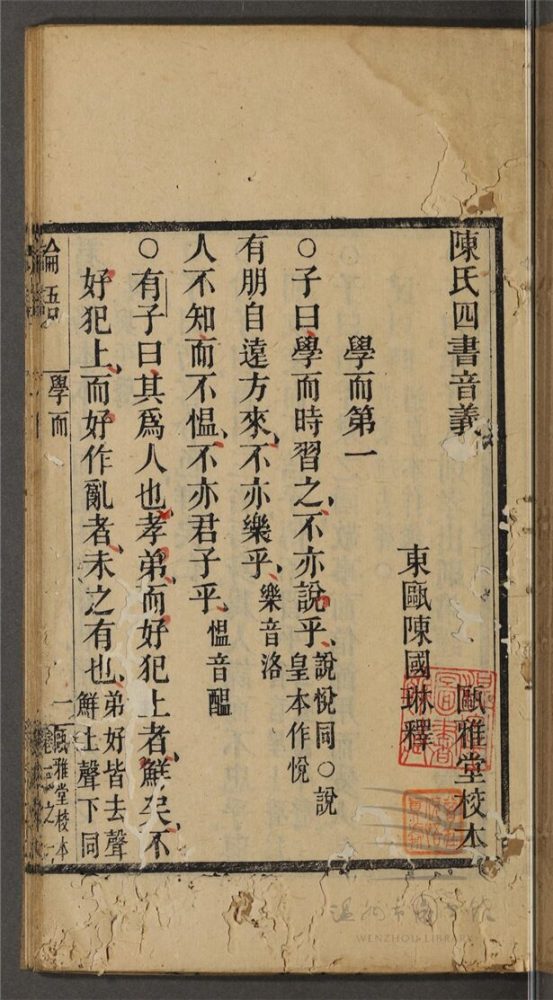 陳氏四書音義　甌雅堂校本
東甌陳國琳釋
學而第一
○子曰學而時習之不亦說乎說悅同○說皇本作悅
有朋自遠方來不亦樂乎樂音洛
人不知而不愠不亦君子乎愠音醞
○有子曰其爲人也孝弟而好犯上者鮮矣不
好犯上而好作亂者未之有也弟好皆去聲鮮上聲下同
論語　學而　一　甌雅堂校本
WENZHOU LIBRARY